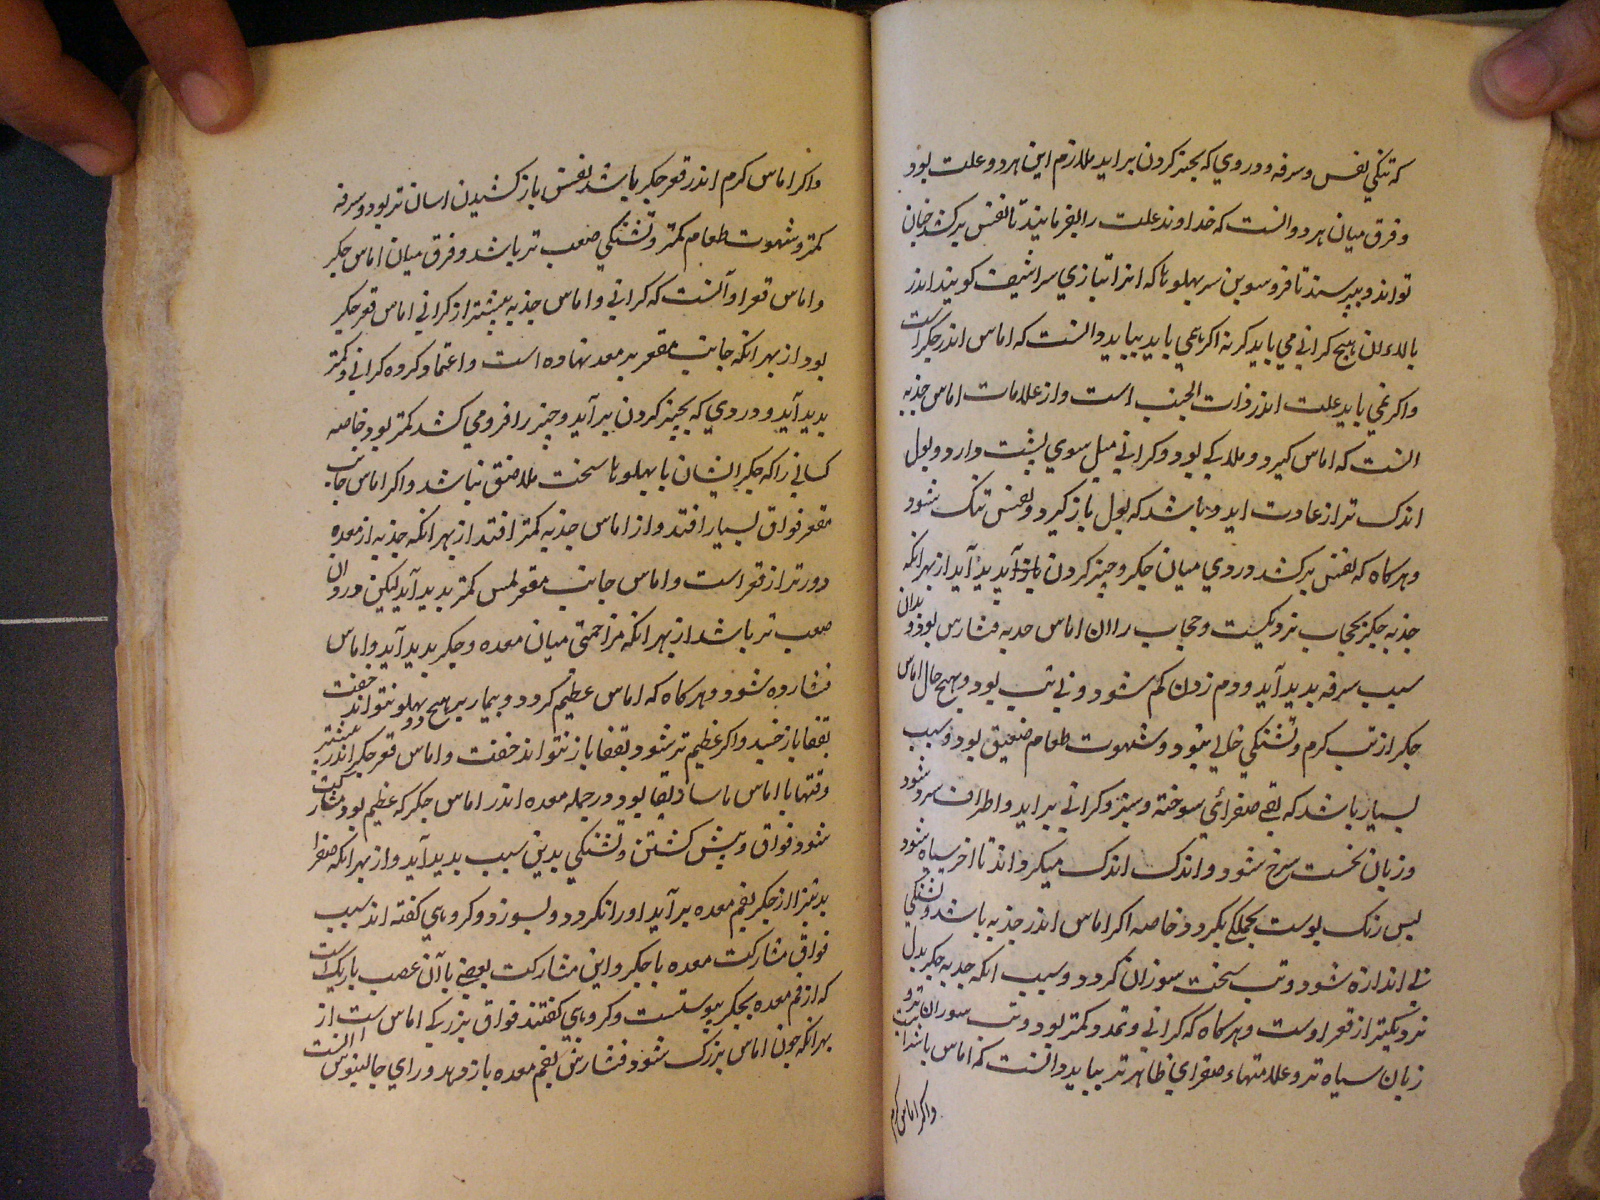 که تنکي نفس و سرفه و دردي که بجنبر کردن براید ملازم این هر دو علت بود
و فرق میان هر دو انست که خداوند علت را بفرمایند تا نفس برکشد چنان
تواند و بپرسند تا فرو سوین سر پهلوها که انرا بتازي سراشیف کویند اندر
بالاء ان هیچ کراني مي یابد کر نه اکر همي یابد بباید دانست که اماس اندر جکر است
و اکر نمي یابد علت اندر ذات الجنب است و از علامات اماس حدبه
انست که اماس کیرد و هلالي بود و کراني میل سوي پشت دارد و بول
اندک تر از عادت اید و باشد که بول باز کیرد و نفس تنک شود
و هرکاه که نفس برکشد دردي میان جکر و جنبر کردن پدید آید از بهر انکه
حدبه جکر بحجاب نزدیکست و حجاب را ان اماس حدبه فشارش بود و بدان
سبب سرفه بدید آید و دم زدن کم شود و ني تب بود و بهیچ حال اماس
جکر از تب کرم و تشنکي خالي نبود و شهوت طعام ضعیف بود و سبب
بسیار باشد که بقي صفرائي سوخته و سبز و کراثي براید و اطراف سرد شود
و زبان نخست سرخ شود و اندک اندک میکرداند تا اخر سیاه شود
پس رنک پوست بجملکي بکردد خاصه اکر اماس اندر حدبه باشد و تشنکي
بي اندازه شود و تب سخت سوزان کردد و سبب انکه حدبه جکر بدل
نزدیکتر از قعر اوست و هرکاه که کراني و تمدد کمتر بود و تب سوزان تر و
زبان سیاه تر و علامتهاء صفراي ظاهر تر بباید دانست که اماس
و اکر اماس کرم
و اکر اماس کرم اندر قعر جکر باشد نفس باز کشیدن اسان تر بود و سرفه
کمتر و شهوت طعام کمتر و تشنکي صعب تر باشد و فرق میان اماس جکر
و اماس قعر او آنست که کراني و اماس حدبه بیشتر از کراني اماس قعر جکر
بود از بهر انکه جانب مقعر بر معده نهاده است و اعتماد کرده کراني کمتر
بدید آید و دردي که بجنبر کردن بر آید و جنبر را فرو مي کشد کمتر بود خاصه
کساني را که جکر ایشان با پهلوها سخت ملاصق نباشد و اکر اماس جانب
مقعر فواق بسیار افتد و از اماس حدبه کمتر افتد از بهر انکه حدبه از معده
دورتر از قعر است و اماس جانب مقعر لمس کمتر بدید آید لیکن درد ان
صعب تر باشد از بهر انکه مزاحمتي میان معده و جکر بدید آید و اماس
فشارده شود و هرکاه که اماس عظیم کردد و بیمار بر هیچ دو پهلو نتواند خفت
بقفا باز خسبد و اکر عظیم تر شود بقفا باز نتواند خفت و اماس قعر جکر اندر بیشتر
وقتها با اماس ماساریقا بود و در جمله معده اندر اماس جکر که عظیم بود مشارکت
شود فواق و منش کشتن و تشنکي بدین سبب بدید آید و از بهر انکه صفرا
بدتر از جکر بفم معده بر آید او را نکردد و بسوزد و کروهي کفته اند سبب
فواق مشارکت معده با جکر و این مشارکت بعصبي با آن عصب باریک است
که از فم معده بجکر پیوستست و کروهي کفتند فواق بزرکي اماس است از
بهر انکه چون اماس بزرک شود فشارش بفم معده باز دهد و راي جالینوس انست